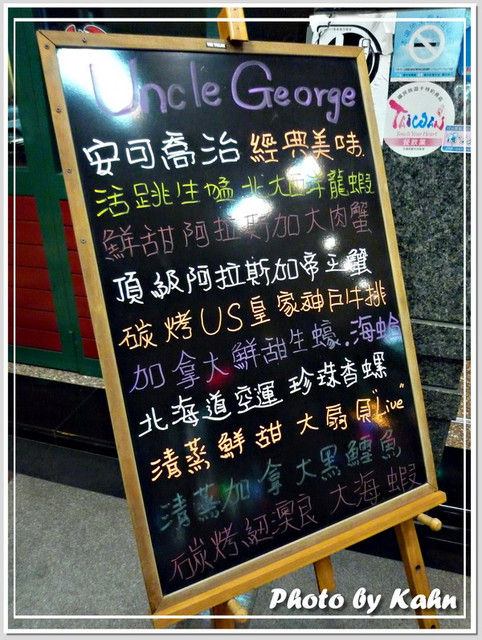 Uncle George
安可喬治 經典美味.
活跳生猛 北大西洋龍蝦
鮮甜阿拉斯加大肉蟹
頂級阿拉斯加帝王蟹
碳烤US皇家神戶牛排
加拿大鮮甜生蠔.海蛤
北海道空運 珍珠香螺
清蒸鮮甜 大扇貝"Live"
清蒸加拿大黑鱈魚
碳烤紐澳良 大海蝦
TAIWAN
Touch Your Heart
餐飲業
Photo by Kahn